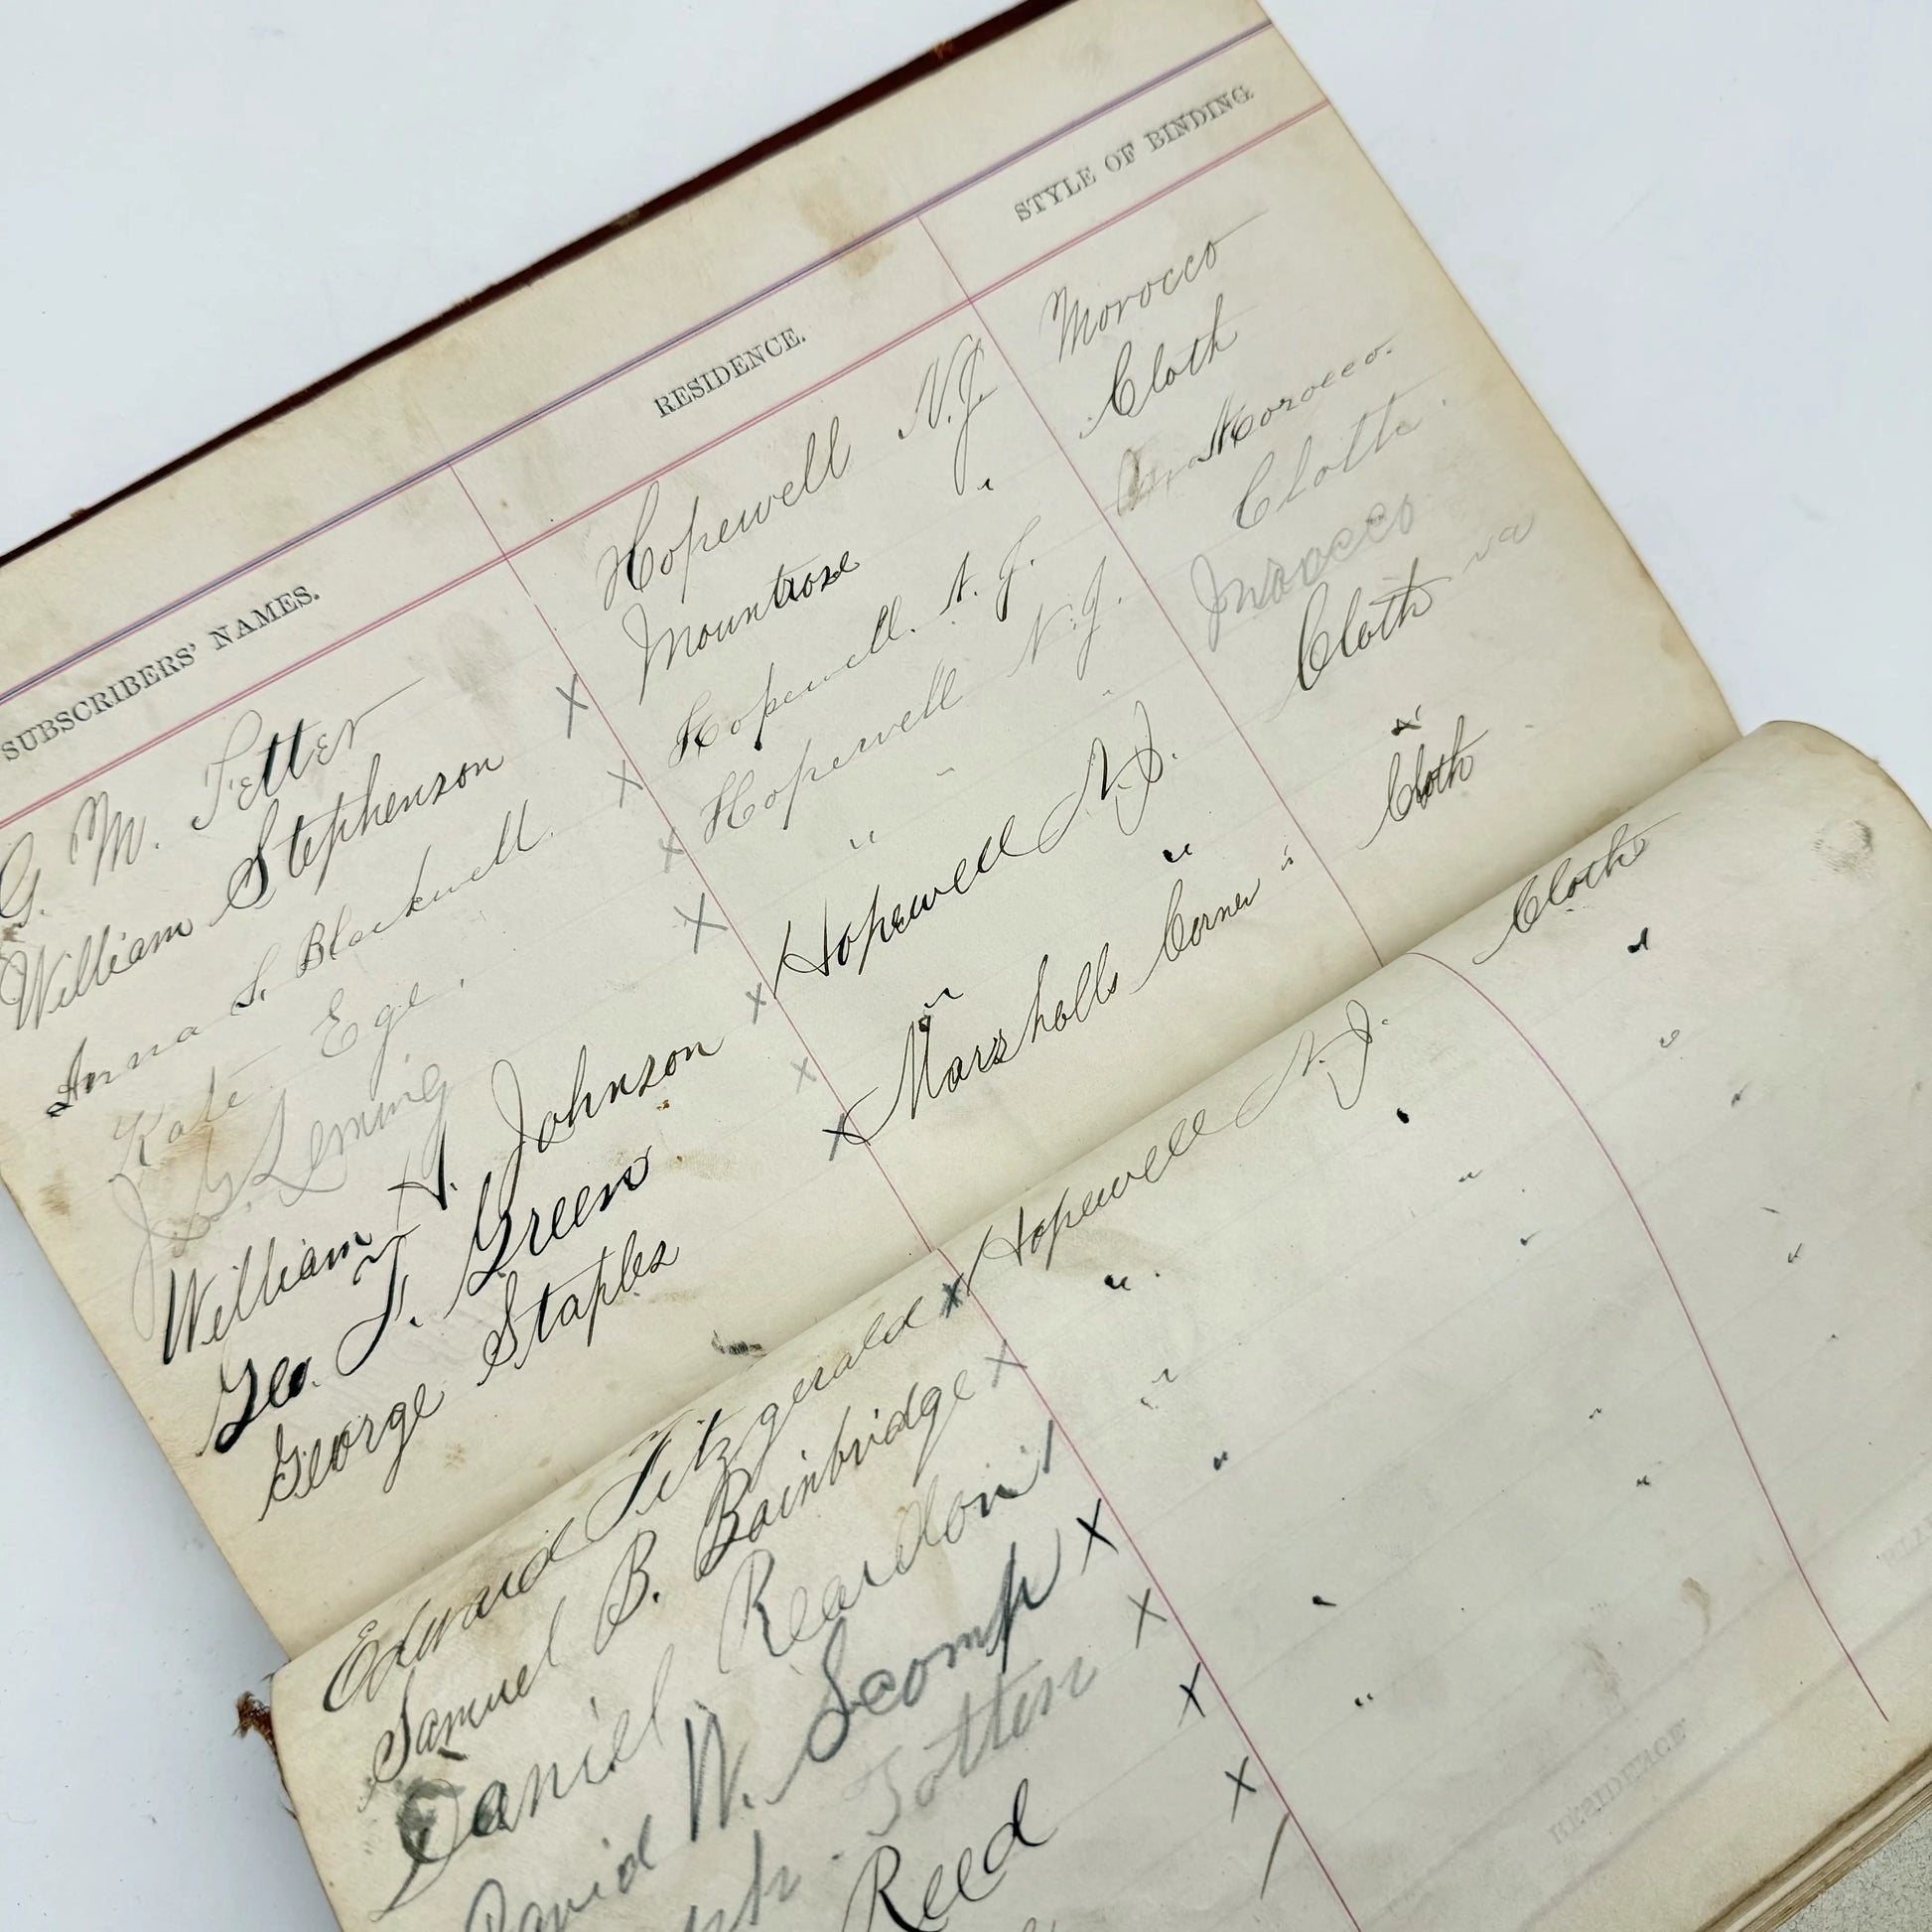 SUBSCRIBERS' NAMES. RESIDENCE. STYLE OF BINDING
G. M. Fetter Hopewell N.J. Morocco
William Stephenson X Mountrose " Cloth
Anna S. Blackwell. X Hopewell. N. J. Morocco.
Kate Ege. X Hopewell N.J. Cloth.
J. G. Leming X " " Morocco
William H. Johnson X Hopewell N.J. Cloth
Geo. T. Green X " " "
George Staples X Marshalls Corner " Cloth
Edward Fitzgerald X Hopewell N.J. Cloth
Samuel B. Bainbridge X " " "
Daniel Reardon / " " "
David W. Scomp X " " "
Totten X " " "
Reed X
RESIDENCE